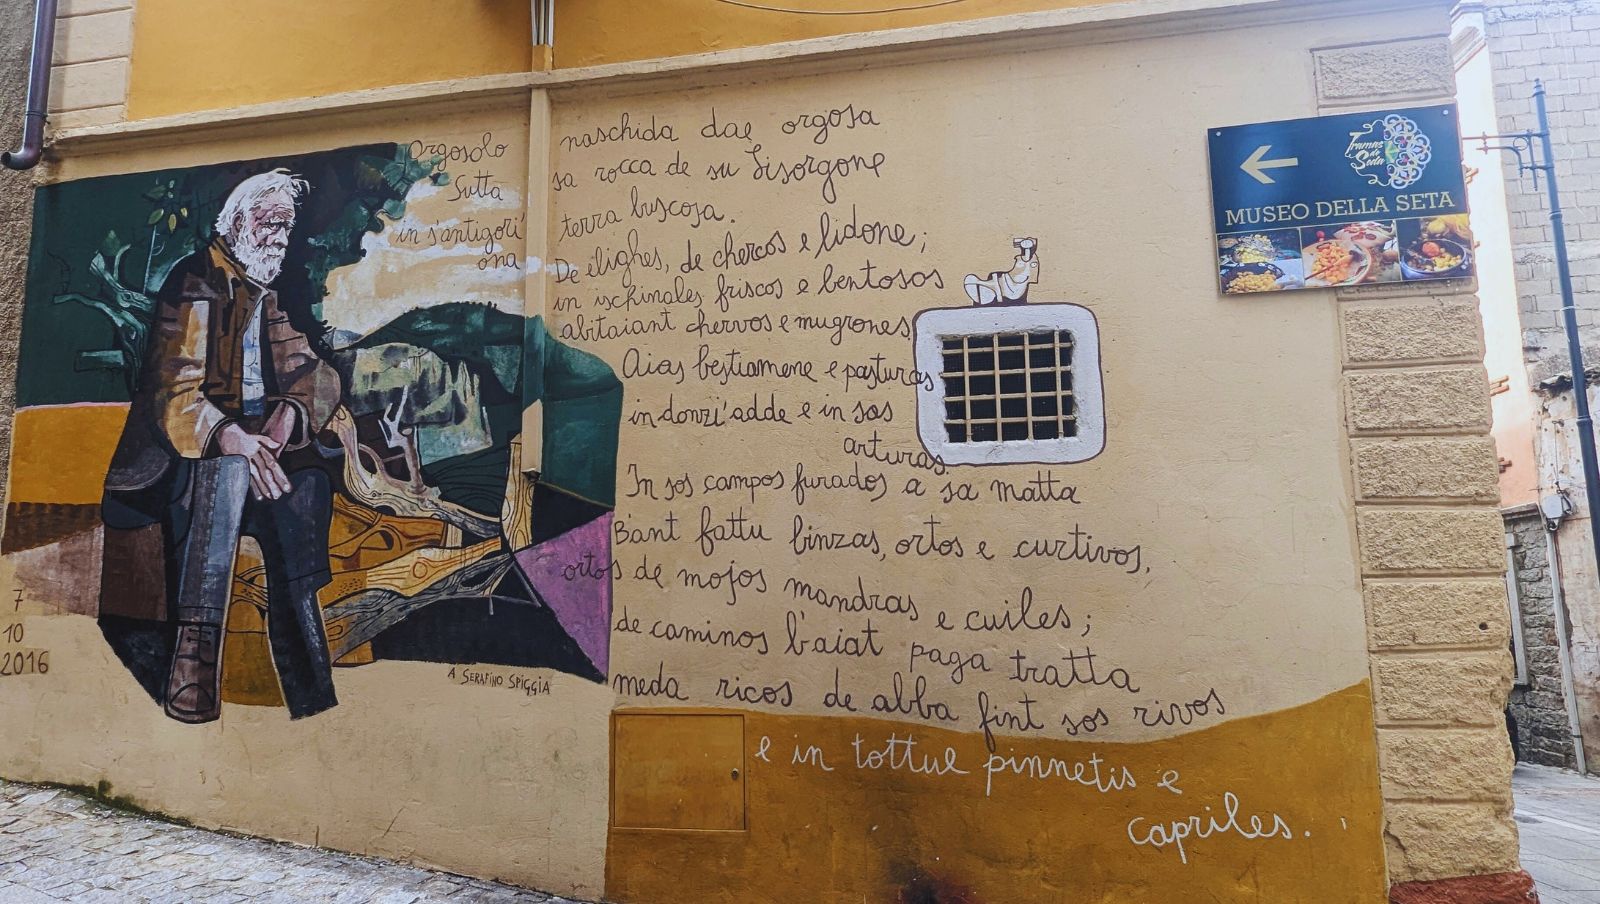 Orgosolo
Sutta
in s'antigori'
ona
naschida dae orgosa
sa rocca de su Lisorgone
terra buscosa.
De elighes, de chercos e lidone;
in ischinales friscos e bentosos
abitaiant chervos e mugrones
Aias bestiamene e pasturas
in donzi'adde e in sas
arturas.
In sos campos furados a sa matta
B'ant fattu binzas, ortos e curtivos,
ortos de mojos mandras e cuiles;
de caminos b'aiat paga tratta
meda ricos de abba fint sos rivos
e in tottue pinnetis e
capriles.
7
10
2016
A SERAFINO SPIGGIA
Tramas
de
Seda
MUSEO DELLA SETA